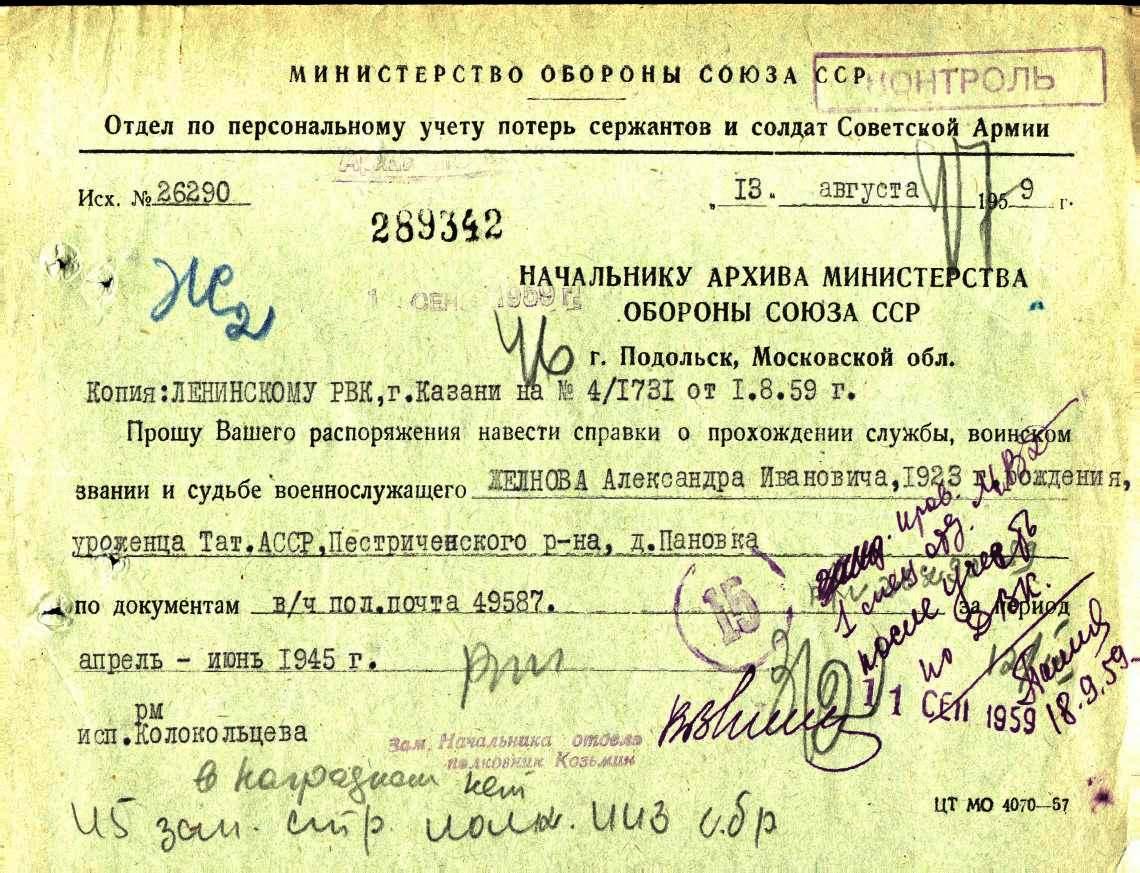 МИНИСТЕРСТВО ОБОРОНЫ СОЮЗА ССР
КОНТРОЛЬ
Отдел по персональному учету потерь сержантов и солдат Советской Армии
Исх. № 26290
„ 13. августа 1959 г.
289342
НАЧАЛЬНИКУ АРХИВА МИНИСТЕРСТВА
1 СЕН. 1959 г.
ОБОРОНЫ СОЮЗА ССР
г. Подольск, Московской обл.
Копия:ЛЕНИНСКОМУ РВК,г.Казани на № 4/1731 от 1.8.59 г.
Прошу Вашего распоряжения навести справки о прохождении службы, воинском
звании и судьбе военнослужащего ЖЕЛНОВА Александра Ивановича,1923 г.рождения,
уроженца Тат.АССР,Пестриченского р-на, д.Пановка
по документам в/ч пол.почта 49587. за период
апрель - июнь 1945 г.
15
после
по
11 СЕН 1959
18.9.59
рм
исп.Колокольцева
Зам. Начальника отдела
полковник Козьмин
в наградном нет
45 зап. стр. полк.
ЦТ МО 4070—57